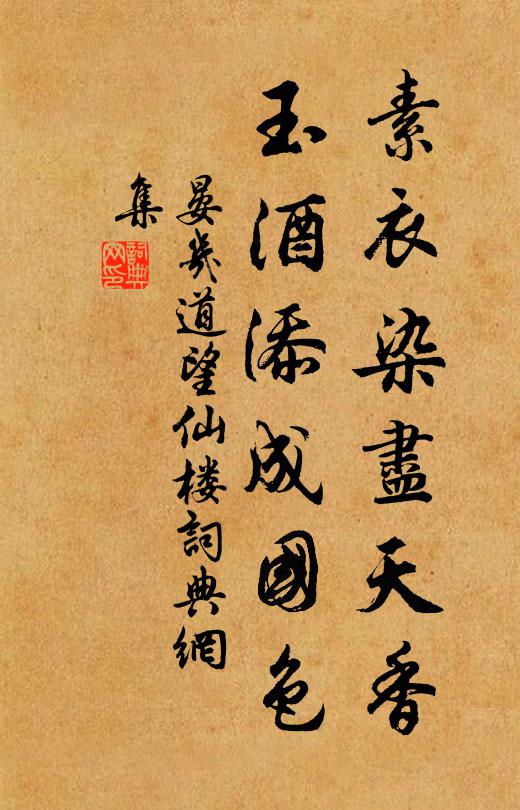 素衣染盡天香
玉酒添成國色
晏幾道望仙楼詞典網
集
詞典
网印